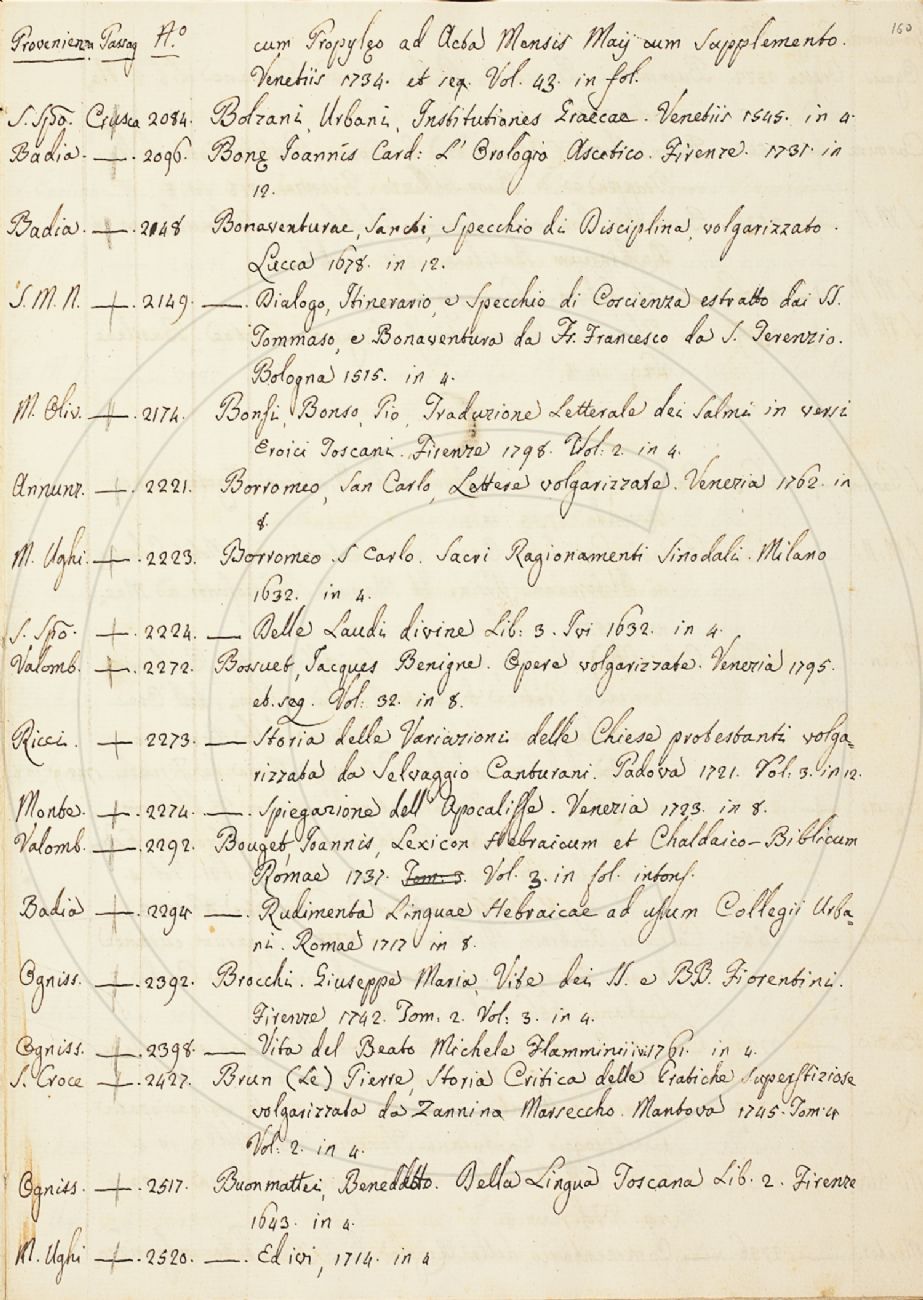 160
Provenienza Passag A.º cum Propylęo ad Acta Mensis Maij cum Supplemento.
Venetiis 1734. et seq. Vol. 43. in fol.
S. Spo. Crusca 2084. Bolzani, Urbani, Institutiones Graecae. Venetiis 1545. in 4.
Badia. — . 2096. Bonę Joannis Card: L' Orologio Ascetico. Firenze. 1731. in
12.
Badia. — . 2148 Bonaventurae, Sancti, Specchio di Disciplina, volgarizzato.
Lucca 1678. in 12.
S. M. N. — . 2149. — . Dialogo, Itinerario, e Specchio di Coscienza estratto dai SS.
Tommaso, e Bonaventura da Fr. Francesco da S. Terenzio.
Bologna 1515. in 4.
M. Oliv. — . 2174. Bonsi, Bonso, Pio, Traduzione Letterale dei Salmi in versi
Eroici Toscani. Firenze 1798. Vol: 2. in 4.
Annunz. — . 2221. Borromeo, San Carlo, Lettere volgarizzate. Venezia 1762. in
8.
M. Ughi. — . 2223. Borromeo S Carlo. Sacri Ragionamenti Sinodali. Milano
1632. in 4.
S. Spo. — . 2224. — Delle Laudi divine Lib: 3. Ivi 1632. in 4.
Valomb. — . 2272. Bossuet, Jacques Benigne. Opere volgarizzate. Venezia 1795.
et. seq. Vol: 32. in 8.
Ricci. — 2273. — Storia delle Variazioni delle Chiese protestanti volga=
rizzata da Selvaggio Canturani. Padova 1721. Vol: 3. in 12.
Monte. — . 2274. — . Spiegazione dell' Apocalisse. Venezia 1723. in 8.
Valomb. — . 2292. Bouget, Joannis, Lexicon Hebraicum et Chaldaico-Biblicum
Romae 1737. Tom: 3. Vol. 3. in fol. intons.
Badia — . 2294. — . Rudimenta Linguae Hebraicae ad usum Collegii Urba=
ni. Romae 1717 in 8.
Ogniss. — . 2392. Brocchi. Giuseppe Maria, Vite dei SS. e BB. Fiorentini.
Firenze 1742. Tom: 2. Vol: 3. in 4.
Ogniss. — . 2398. — Vita del Beato Michele Flammini ivi 1761. in 4.
S. Croce — . 2427. Brun (Le) Pierre, Storia Critica delle Pratiche superstiziose
volgarizzata da Zannina Marseccho. Mantova 1745. Tom: 4
Vol: 2. in 4.
Ogniss. — . 2517. Buonmattei, Benedetto. Della Lingua Toscana Lib. 2. Firenze
1643. in 4.
M. Ughi — . 2520. — . Ed ivi, 1714. in 4